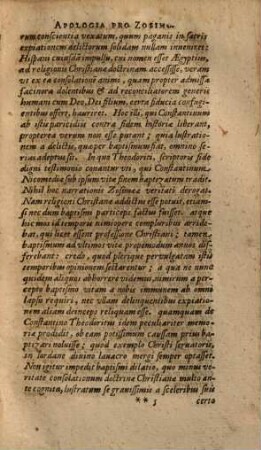 APOLOGIA PRO ZOSIM.
rum conscientia vexatum, quum paganis in sacris
expiationem delictorum solidam nullam inveniret;
Hispani cuiusdā impulsu, cui nomen esset Ægyptius,
ad religionis Christianæ doctrinam accessisse, veram
ut ex ea consolationē animi, quam propter admissa
facinora dolentibus & ad reconciliatorem generis
humani cum Deo, Dei filium, certa fiducia confugi-
entibus offert, hauriret. Hoc illi, qui Constantinum
ab ista particula contra fidem historiæ liberant,
propterea verum non esse putant; quia lustratio-
nem a delictis, quæ per baptismum fiat, omnino se-
rius adeptus sit. In quo Theodoriti, scriptoris fide
digni testimonio ut, qui Constantinum,
Nicomediæ sub ipsum vitæ finem baptizatum tradit.
Nihil hoc narrationis Zosimeæ veritati derogat.
Nam religioni Christianæ addictus esse potuit, etiam-
si nec dum baptismi particeps factus fuisset. atque
hic mos id temporis nimiopere compluribus arride-
bat, qui licet essent professione Christiani; tamen
baptismum ad ultimos vitæ propemodum annos dif-
ferebant: credo, quod plerique pervulgatam istis
temporibus opinionem sectarentur; a qua ne anno
quidem aliquot abhorrere videmus, nimirum a per-
cepto baptismo vitam a nobis immunem ab omni
lapsu requiri, nec ullam delinquentibus expiatio-
nem aliam deinceps reliquam esse. quamquam de
Constantino Theodoritus idem peculiariter memo-
riæ prodidit, ob eam potissimum caussam prius ba-
ptizari noluisse; quod exemplo Christi servatoris,
in Iordane divino lavacro mergi semper optasset.
Non igitur impedit baptismi dilatio, quo minus ve-
ritate consolationum doctrinæ Christianæ multo an-
te cognita, lustratum se gravissimis a sceleribus suis
** 5 certo